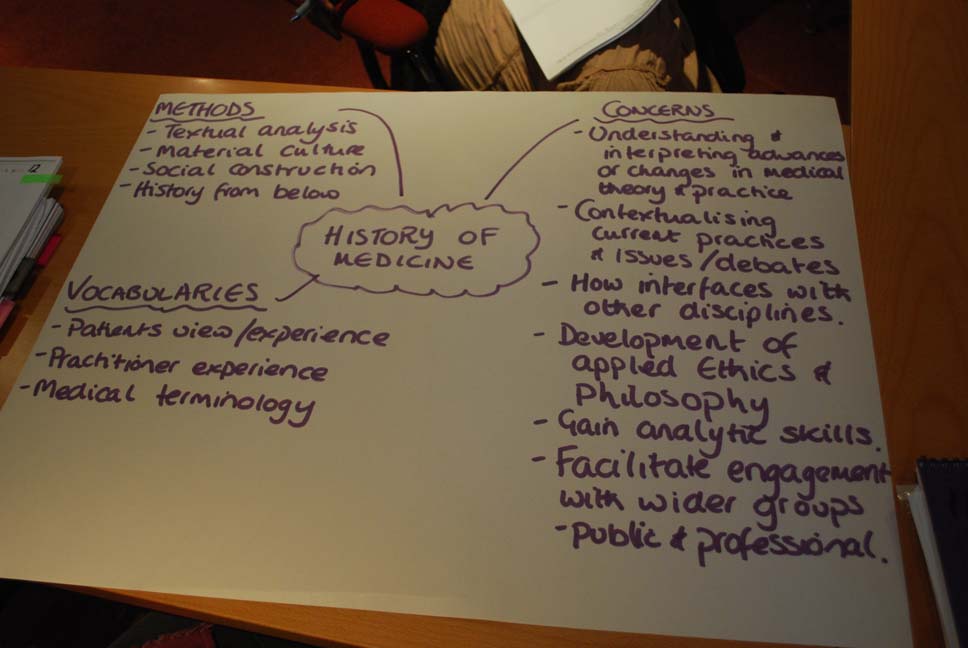 METHODS
- Textual analysis
- Material culture
- Social construction
- History from below
HISTORY OF
MEDICINE
VOCABULARIES
- Patients view/experience
- Practitioner experience
- Medical terminology
CONCERNS
- Understanding &
interpreting advances
or changes in medical
theory & practice
- Contextualising
current practices
& issues/debates
- How interfaces with
other disciplines.
- Development of
appled Ethics &
Philosophy
- Gain analytic skills.
- Facilitate engagement
with wider groups
- Public & professional.
12